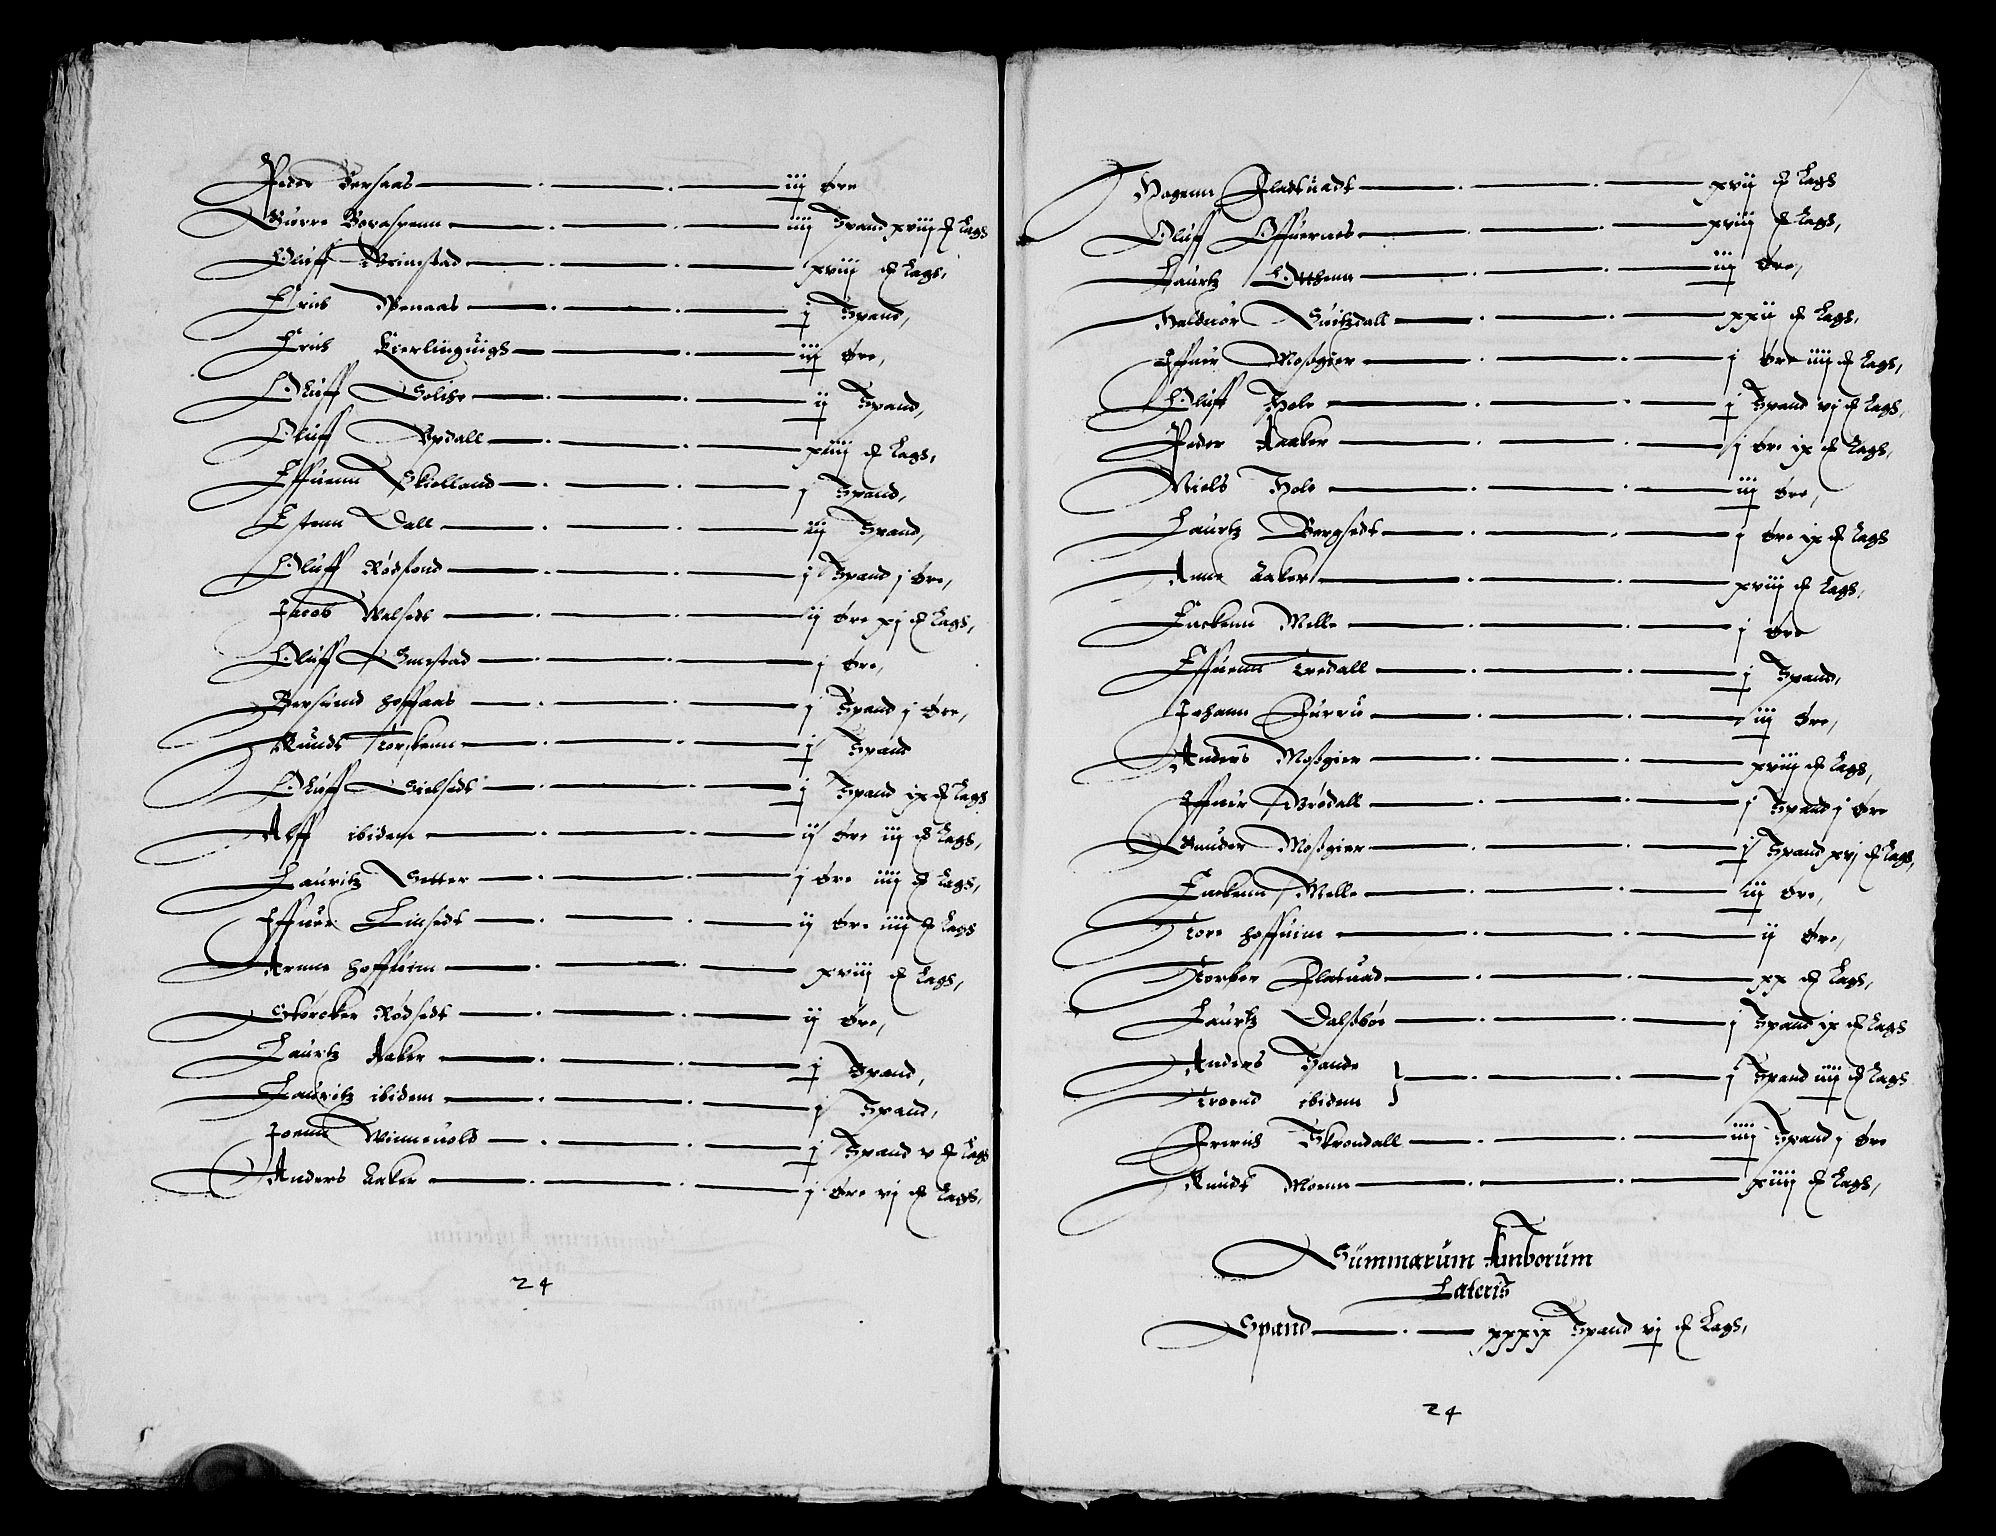 Peder Bersaas — iij øre
Siurre Boraspenn — iiij Spand xviij ₰ Lags
Oluff Grimstad — xviij ₰ Lags,
Erich Openaas — j Spand,
Erich Kierlinguigh — iij øre,
Oluff Solihe — ij Spand,
Oluff Opdall — xiiij ₰ Lags,
Effuenn Skielland — j Spand,
Estenn Dall — iij Spand,
Oluff Rødsand — j Spand j øre,
Jacob Valsedt — ij øre xj ₰ Lags,
Oluff Smestad — j øre,
Bersuend Hoffaas — j Spand j øre,
Knudt Torskenn — j Spand
Oluff Sielsedt — j Spand ix ₰ Lags
Alff ibidem — ij øre iij ₰ Lags,
Lauritz Setter — j øre iiij ₰ Lags,
Iffuer Linsedt — ij øre iiij ₰ Lags
Arnne Hoffuim — xviij ₰ Lags,
Størcker Rødsedt — ij øre,
Laurtz Aaker — j Spand,
Lauritz ibidem — j Spand,
Joenn Winneuold — j Spand v ₰ Lags
Anders Aaker — j øre vj ₰ Lags,
24
Hogenn Fladtuadt — xvij ₰ Lags
Oluff Offuernes — xviij ₰ Lags,
Laurtz Otthenn — iij øre,
Halduor Suitzdall — xxij ₰ Lags,
Iffuer Moßgier — j øre iiij ₰ Lags,
Oluff Hole — j Spand vj ₰ Lags,
Peder Aaker — j øre ix ₰ Lags,
Niels Hole — iij øre,
Laurtz Bergsedt — j øre ix ₰ Lags
Anne Aaker — xviij ₰ Lags,
Enckenn Melle — j øre
Effuenn Tredall — j Spand,
Johann Furru — iij øre,
Anders Moßgier — xviij ₰ Lags,
Iffuer Brødall — j Spand j øre
Gunder Moßgier — j Spand xvj ₰ Lags,
Enckenn Melle — iij øre,
Tore Hoffuim — ij øre,
Torber Flatuad — xx ₰ Lags,
Laurtz Dalsbøe — j Spand ix ₰ Lags
Anders Sande
Troend ibidem } — j Spand iiij ₰ Lags
Frerich Skrondall — iiij Spand j øre
Knudt Moenn — xiiij ₰ Lags,
Summarum Amborum
Lateris
Spand — xxxix Spand vj ₰ Lags,
24